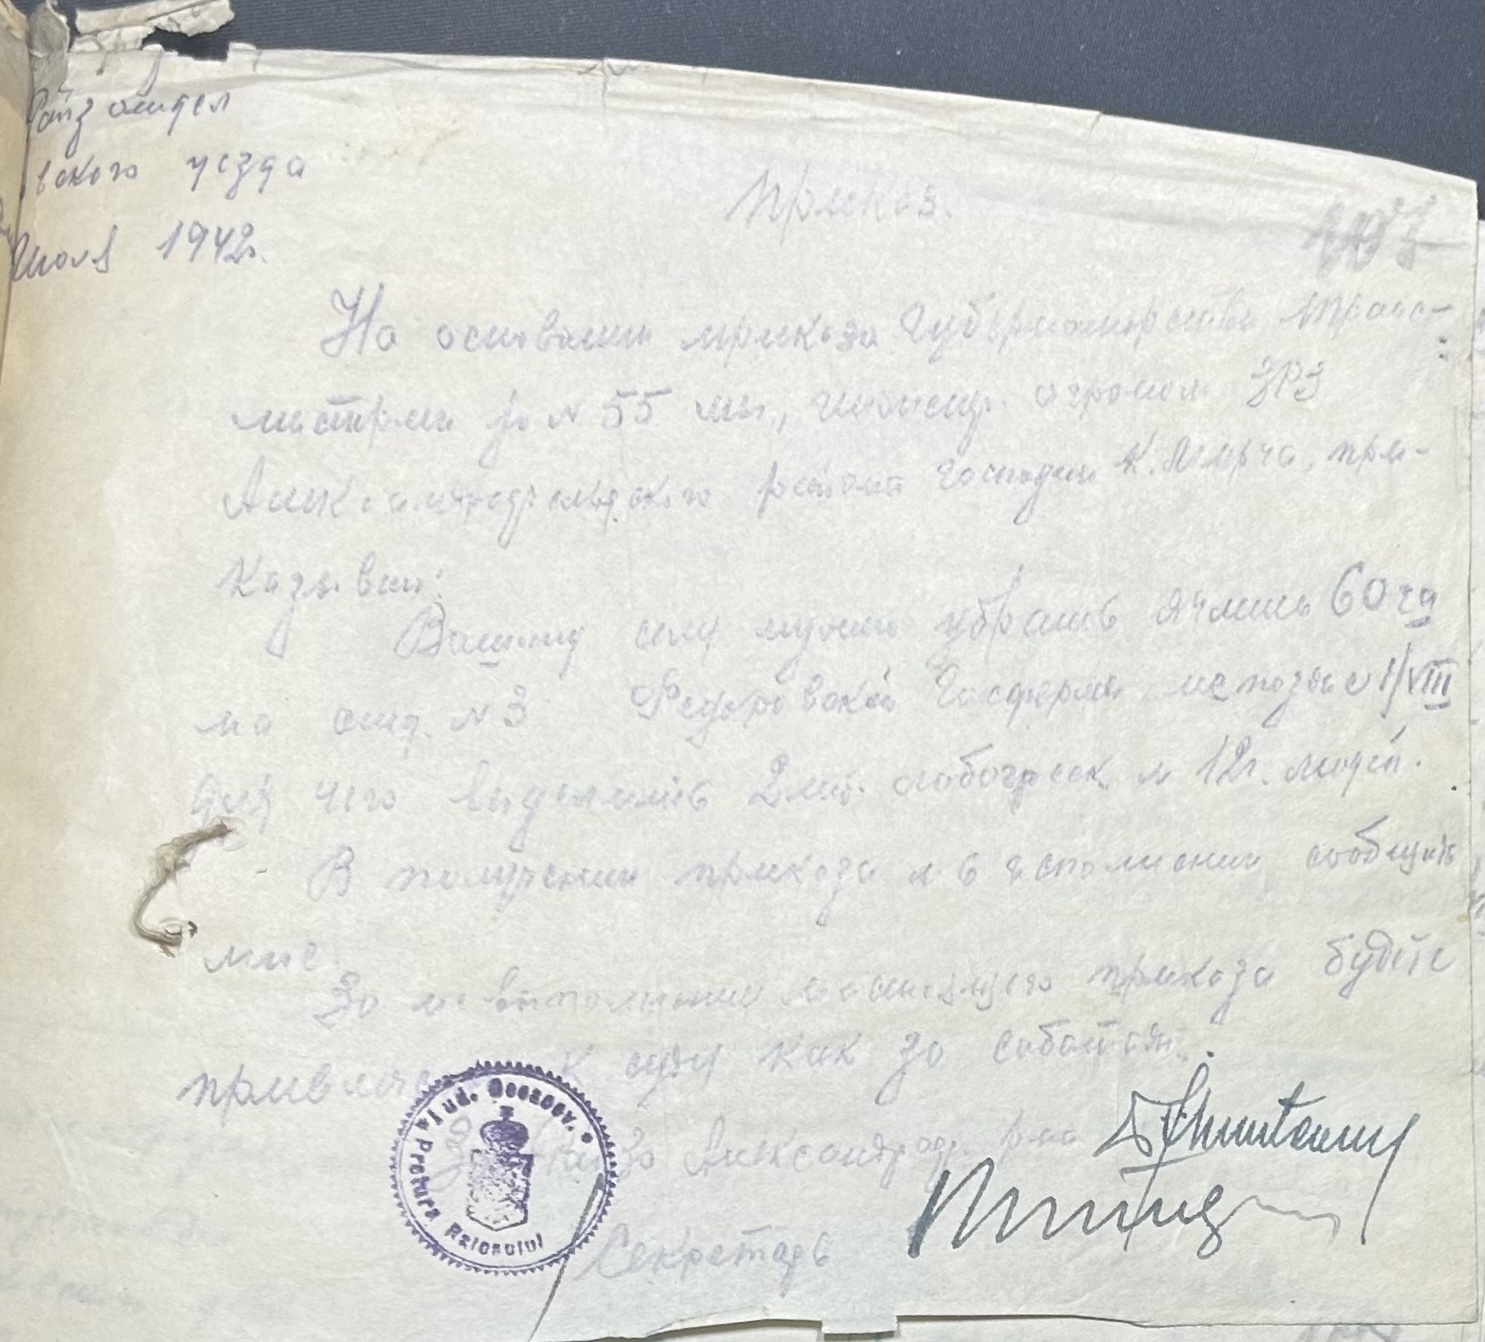 Райзоотдел
вского уезда
Июля 1942г.
Приказ.
На основании приказа Губернаторства Транс-
нистрии за № 55 агроном ЗРЗ
Александродарского района господин К. при-
казываю:
Вашему селу нужно убрать ячмень 60 га
на отд. № 3 Федоровской Госфермы не позднее 1/VIII
для чего выделить 2 лобогреек и 12 людей.
В получении приказа и в исполнении сообщить
мне.
За невыполнение настоящего приказа будете
привлечены к суду как за саботаж.
Райзо Александродар. р-на
Секретарь
Jud. Oceacov.
Pretura Raionului